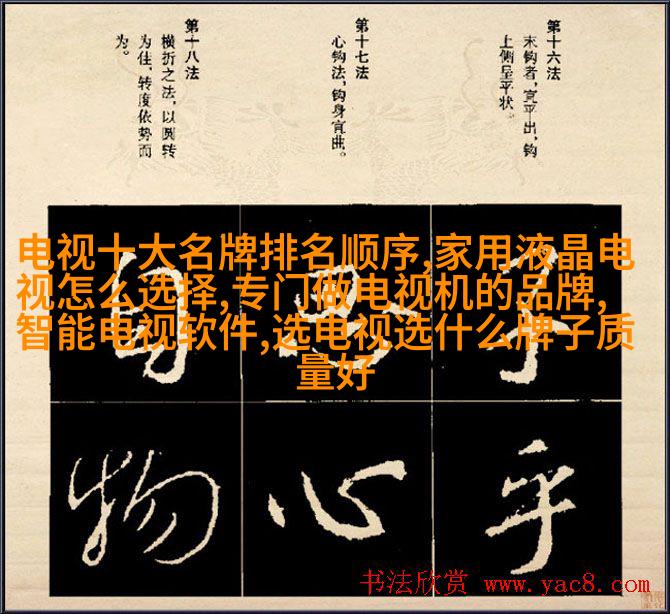 第十六法
末钩者，宜平出，钩
上侧呈平状
第十七法
心钩法，钩身宜曲。
第十八法
横折之法，以圆转
为佳，转度依势而
为。
电视十大名牌排名顺序,家用液晶电
视怎么选择,专门做电视机的品牌,
智能电视软件,选电视选什么牌子质
量好
子
自
乎
心
物
书法欣赏 www.yac8.com